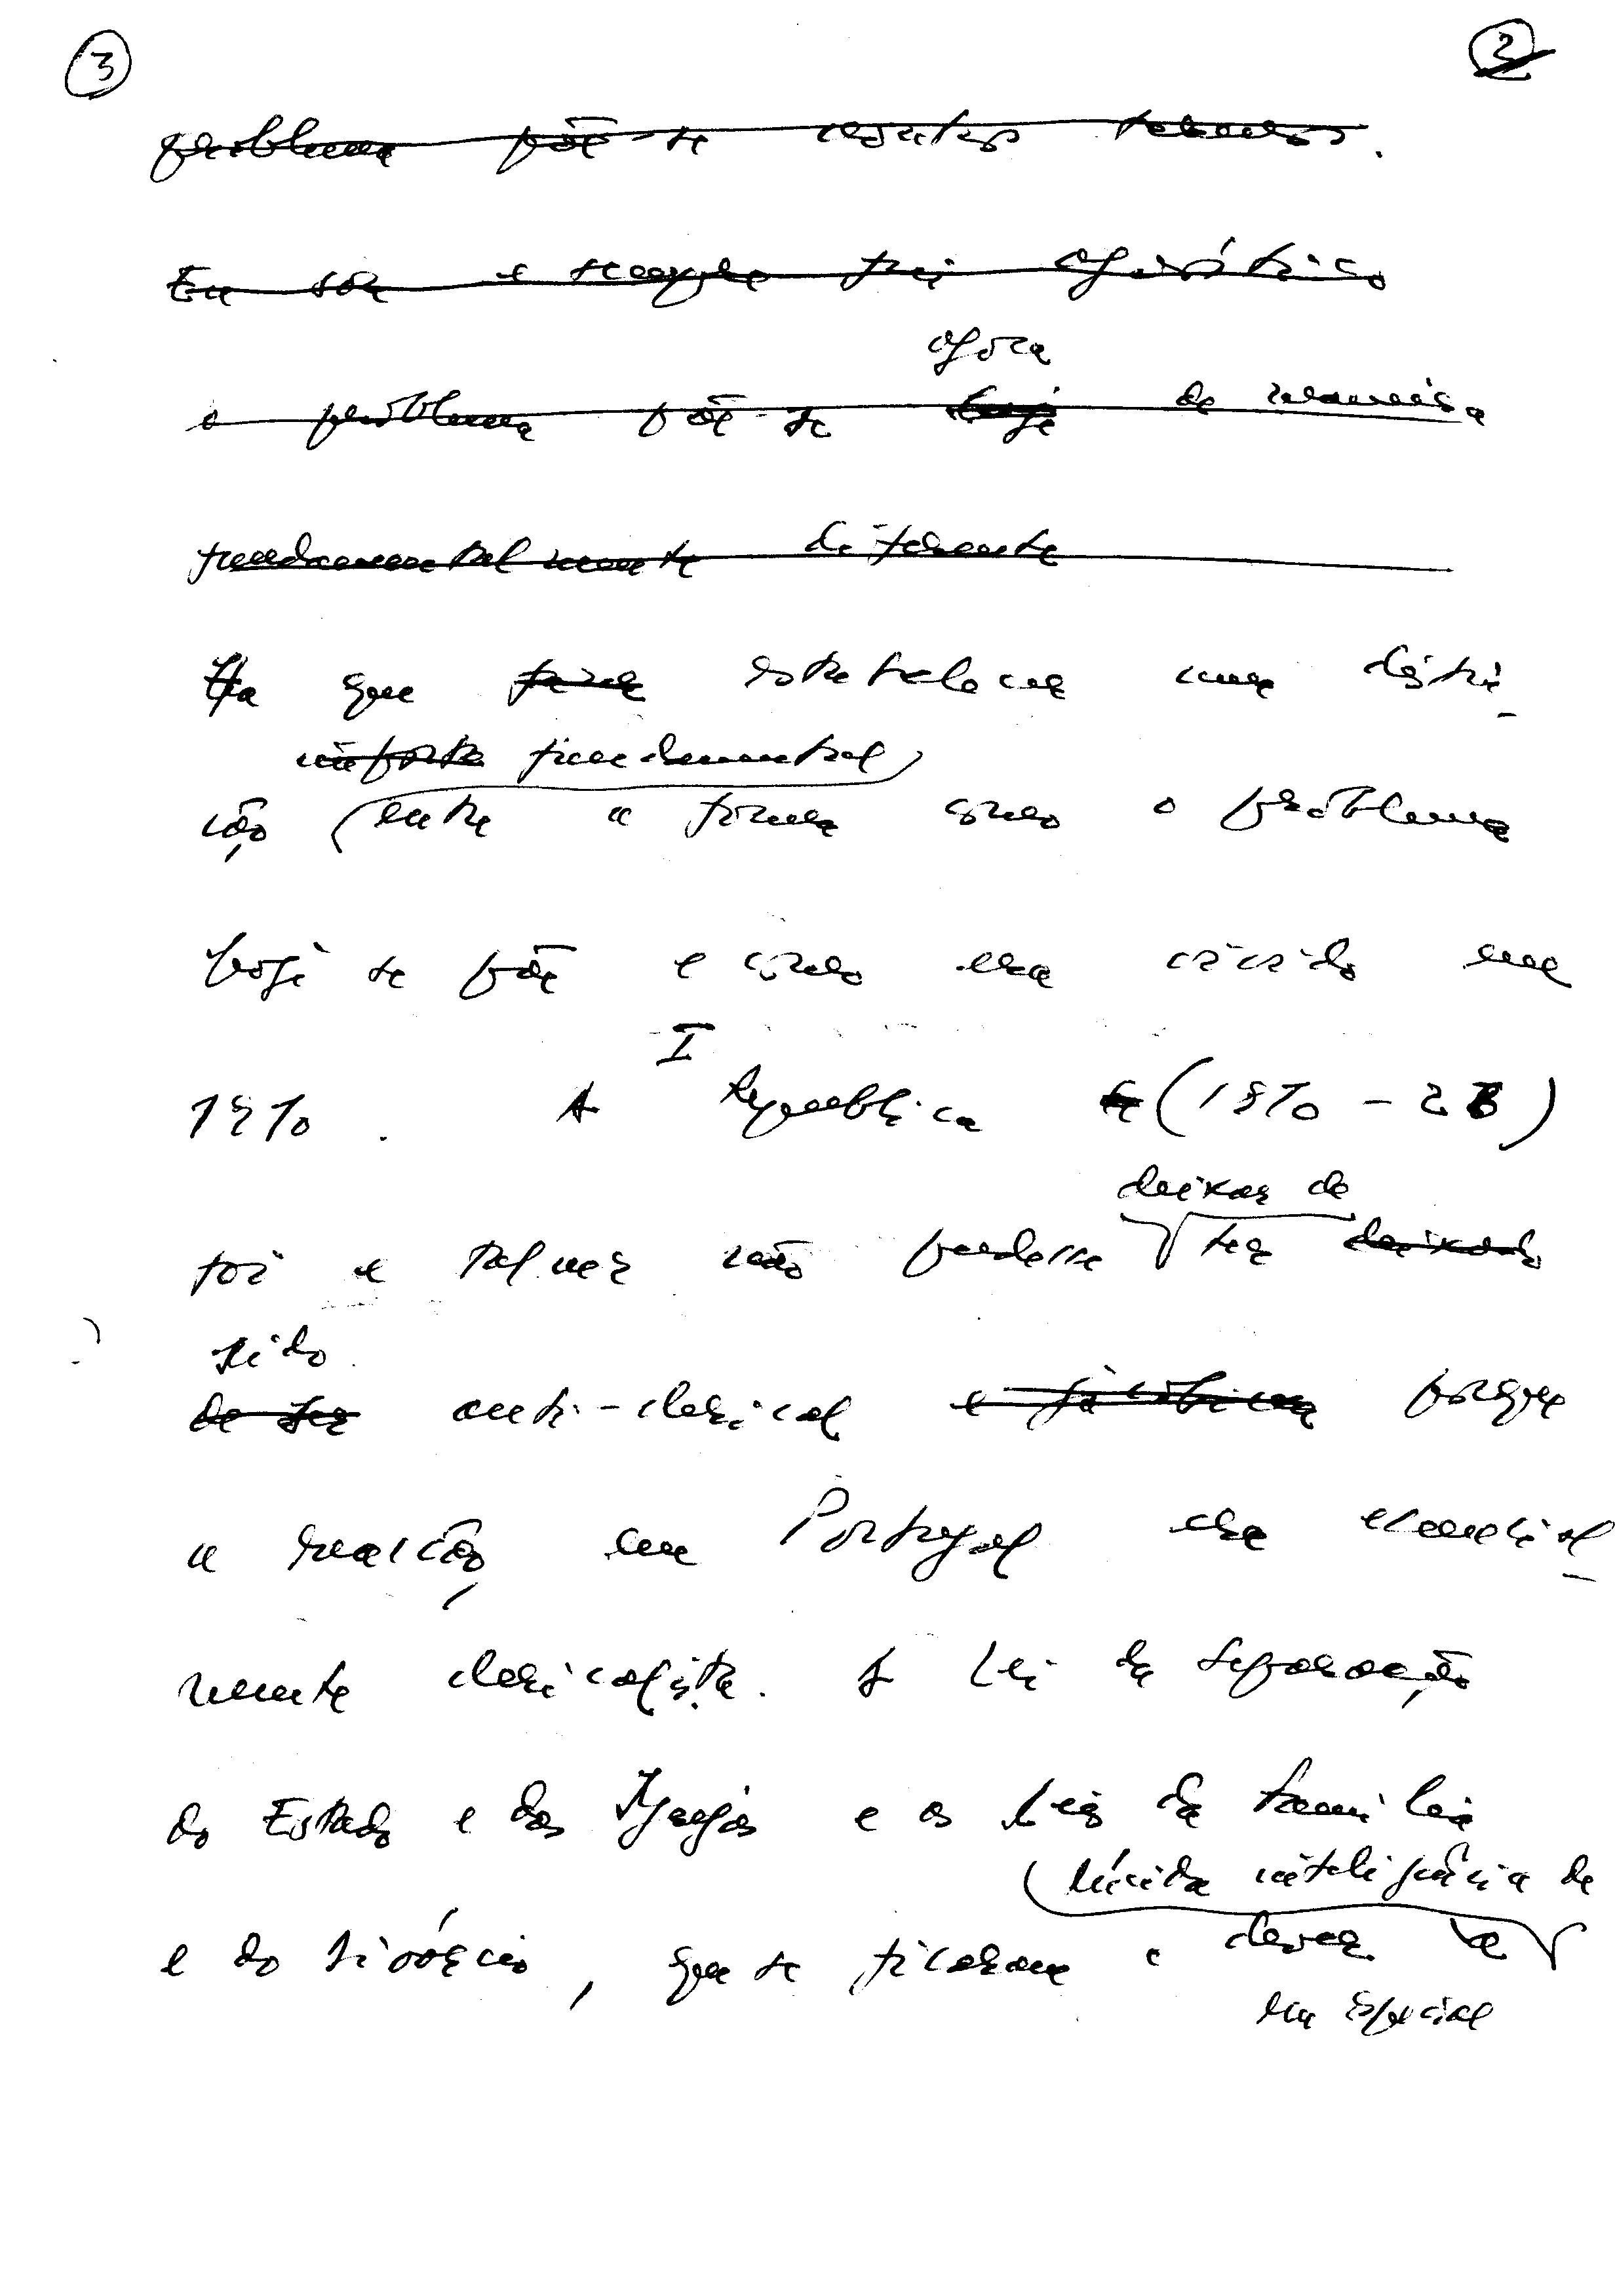 3 2
problema põe-se noutros termos.
Eu sou e sempre fui agnóstico
agora
o problema põe-se hoje de maneira
fundamentalmente diferente
Há que fazer estabelecer uma distin-
importante fundamental
ção entre a forma como o problema
hoje se põe e como era vivido em
I
1910. A República (1910-26)
deixar de
foi e talvez não pudesse ter deixado
sido
de ser anti-clerical e jacobina porque
a reacção em Portugal era essencial-
mente clericalista. A Lei da Separação
do Estado e das Igrejas e as Leis da Família
lúcida inteligência de
e do Divórcio, que se ficaram a dever à
em especial